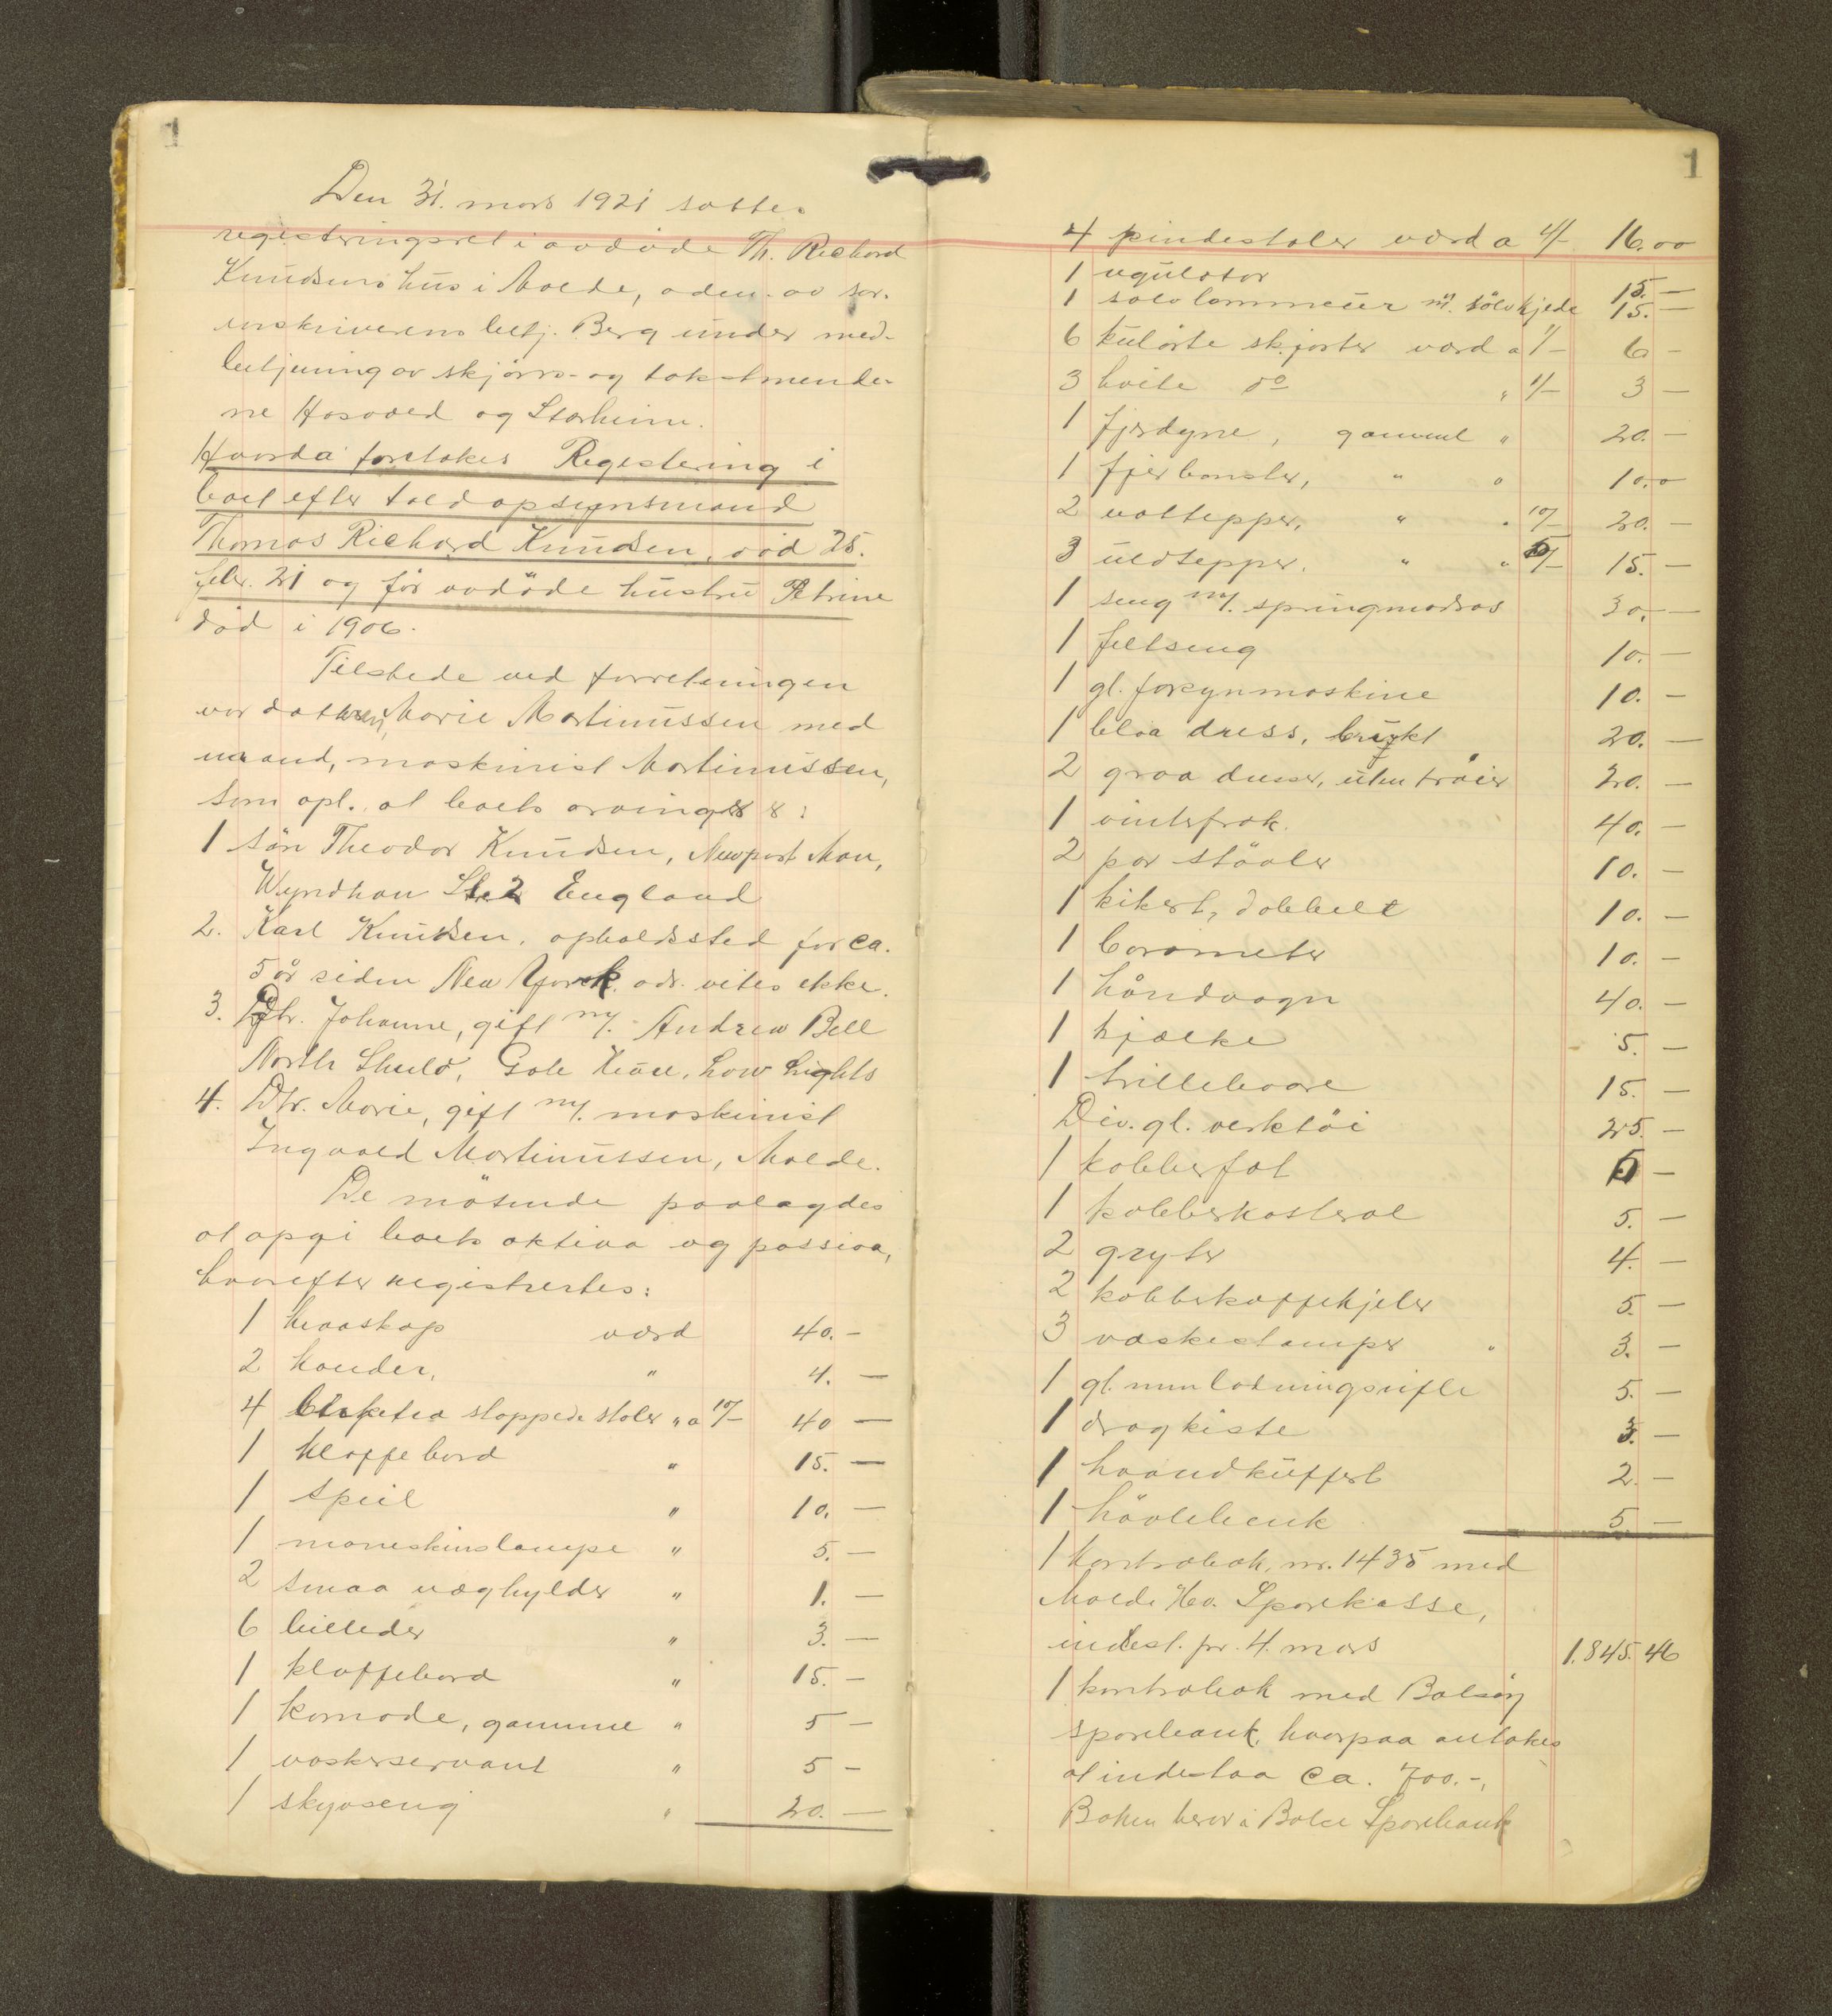 1
Den 31. mars 1921 sattes
registeringsret i avdöde Th. Richard
Knudsens hus i Molde, aden. av sor.
enskriverens betj. Berg under med-
betjening av skjöns- og takstmende-
ne Hasvold og Storheim.
Hvorda foretokes Registering i
boet efter toldopsynsmand
Thomas Richard Knudsen, död 25.
febr. 21 og för avdöde hustru Petrine
död i 1906.
Tilstede ved forretningen
var datteren Marie Martinussen med
mand, maskinist Martinussen,
som opl. at boets arvinger er:
1 Sön Theodor Knudsen, Newport Mon,
Wyndham Str. 2 England
2. Karl Knudsen, opholdssted for ca.
5 år siden New York. adr. vites ikke.
3. Dtr. Johanne, gift m/. Andrew Bell
North Shield, Gole , Low Lights
4. Dtr. Marie, gift m/. maskinist
Ingvald Martinussen, Molde.
De mötende paalagdes
at opgi boets aktiva og passiva,
hvorefter registrertes:
1 klæskap værd 40.-
2 kander, " 4. —
4 stoppede stoler " a 10/- 40 —
1 klaffebord " 15. —
1 speil " 10. —
1 maneskinslampe " 5. —
2 smaa væghylder " 1. —
6 billeder " 3. —
1 klaffebord " 15. —
1 komode, gammel " 5 —
1 vaskeservant " 5 -
1 skyvseng " 20. —
1
4 pindestoler værd a 4/- 16.00
1 regulator 15. —
1 sölv lommeur m. sölvkjede 15. —
6 kulörte skjorter værd a 1/- 6 -
3 hvite do " 1/- 3 —
1 fjærdyne, gammel " 20. —
1 fjær bolster, " " 10.0
2 vattepper, " " 10/- 20. —
3 uldtepper. " " 5/- 15. —
1 seng m/. springmadras 30. —
1 feltseng 10. —
1 gl. forsynmaskine 10. -
1 blaa dress, brukt 20. —
2 graa dresser, uten tröier 20. —
1 vinterfrak. 40. —
2 par stövler 10. —
1 kikert, dobbelt 10. —
1 barometer 10. —
1 håndvogn 40. —
1 kjælke 5. —
1 trillebaare 15. —
Div. gl. verktöi 25. —
1 kobberfat 5 —
1 kobberkasterol 5. —
2 gryter 4. —
2 kobberkaffekjeler 5. —
3 vaskestamper " 3. —
1 gl. munladningsrifle 5. —
1 dragkiste 3. —
1 haandkuffert 2. —
1 hövlebenk 5 —
1 Kontrabok, nr. 1435 med
Molde Hov. Sparekasse,
indest. pr. 4. mars 1.845.46
1 kontrabok med Bolsöy
sparebank, hvorpaa antakes
at indestaa ca. 700.-,
Boken beror i Bolsö Sparebank